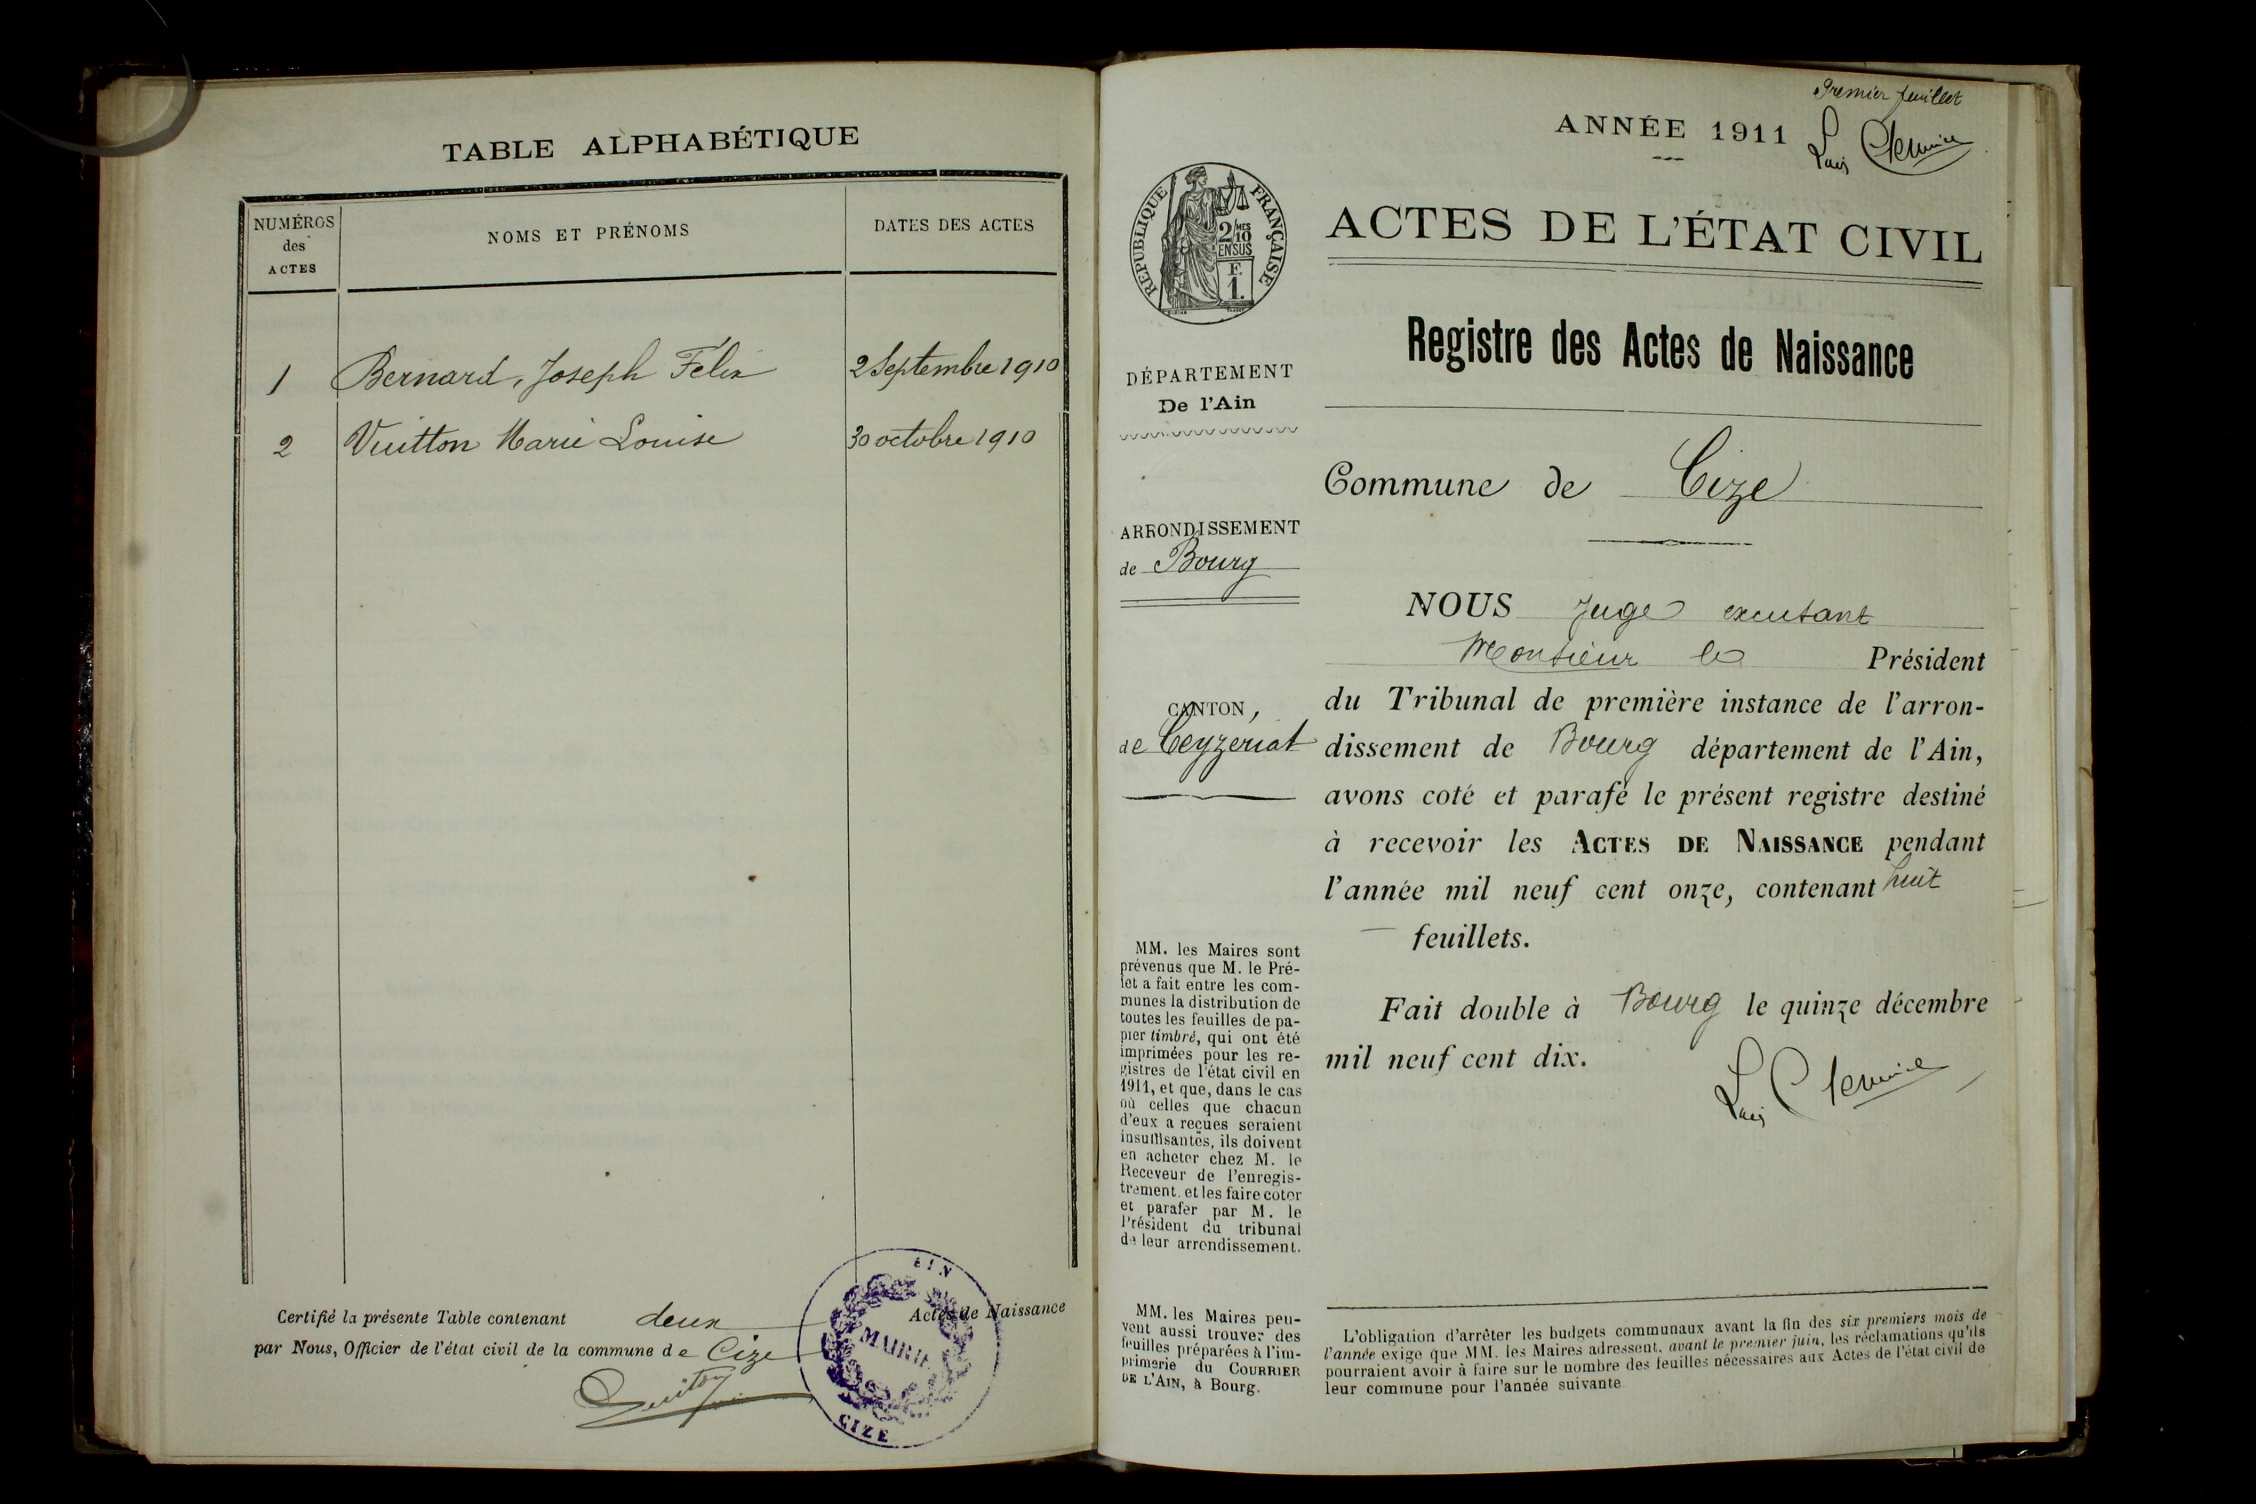 TABLE ALPHABÉTIQUE
NUMÉROS
des
ACTES
NOMS ET PRÉNOMS
DATES DES ACTES
1 Bernard, Joseph Felix 2 Septembre 1910
2 Vuitton Marie Louise 30 octobre 1910
Certifié la présente Table contenant deux Actes de Naissance
par Nous, Officier de l'état civil de la commune de Cize
AIN
MAIRIE
CIZE
Premier feuillet
ANNÉE 1911
RÉPUBLIQUE FRANÇAISE
2/10
MES
EN SUS
F.
1.
DÉPARTEMENT
De l'Ain
ARRONDISSEMENT
de Bourg
CANTON
de Ceyzeriat
MM. les Maires sont
prévenus que M. le Pré-
fet a fait entre les com-
munes la distribution de
toutes les feuilles de pa-
pier timbré, qui ont été
imprimées pour les re-
gistres de l'état civil en
1911, et que, dans le cas
où celles que chacun
d'eux a reçues seraient
insuffisantes, ils doivent
en acheter chez M. le
Receveur de l'enregis-
trement, et les faire coter
et parafer par M. le
Président du tribunal
de leur arrondissement.
MM. les Maires peu-
vent aussi trouver des
feuilles préparées à l'im-
primerie du COURRIER
DE L'AIN, à Bourg.
ACTES DE L'ÉTAT CIVIL
Registre des Actes de Naissance
Commune de Cize
NOUS Juge
Monsieur le Président
du Tribunal de première instance de l'arron-
dissement de Bourg département de l'Ain,
avons coté et parafé le présent registre destiné
à recevoir les ACTES DE NAISSANCE pendant
l'année mil neuf cent onze, contenant huit
feuillets.
Fait double à Bourg le quinze décembre
mil neuf cent dix.
L'obligation d'arrêter les budgets communaux avant la fin des six premiers mois de
l'année exige que MM. les Maires adressent, avant le premier juin, les réclamations qu'ils
pourraient avoir à faire sur le nombre des feuilles nécessaires aux Actes de l'état civil de
leur commune pour l'année suivante